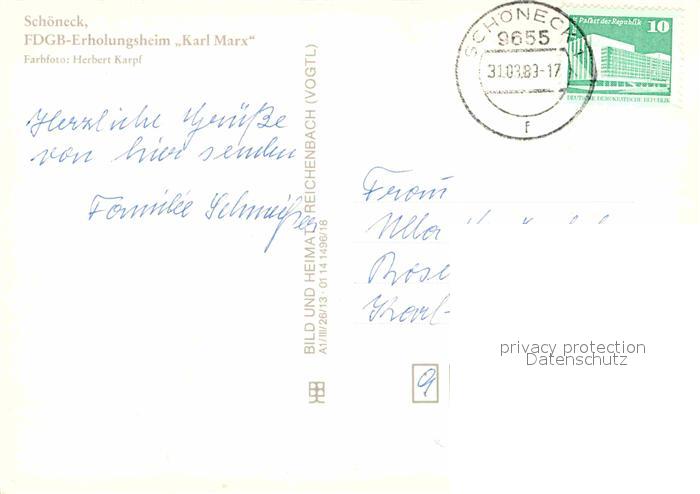 Schöneck,
FDGB-Erholungsheim „Karl Marx“
Farbfoto: Herbert Karpf
Herzliche Grüße
von hier senden
Familie
BILD UND HEIMAT REICHENBACH (VOGTL)
A1/III/26/13 · 01 14 1496/18
SCHÖNECK 1
9655
-17
f
Palast der Republik
10
DEUTSCHE DEMOKRATISCHE REPUBLIK
Frau
Rose
Karl-
9
privacy protection
Datenschutz